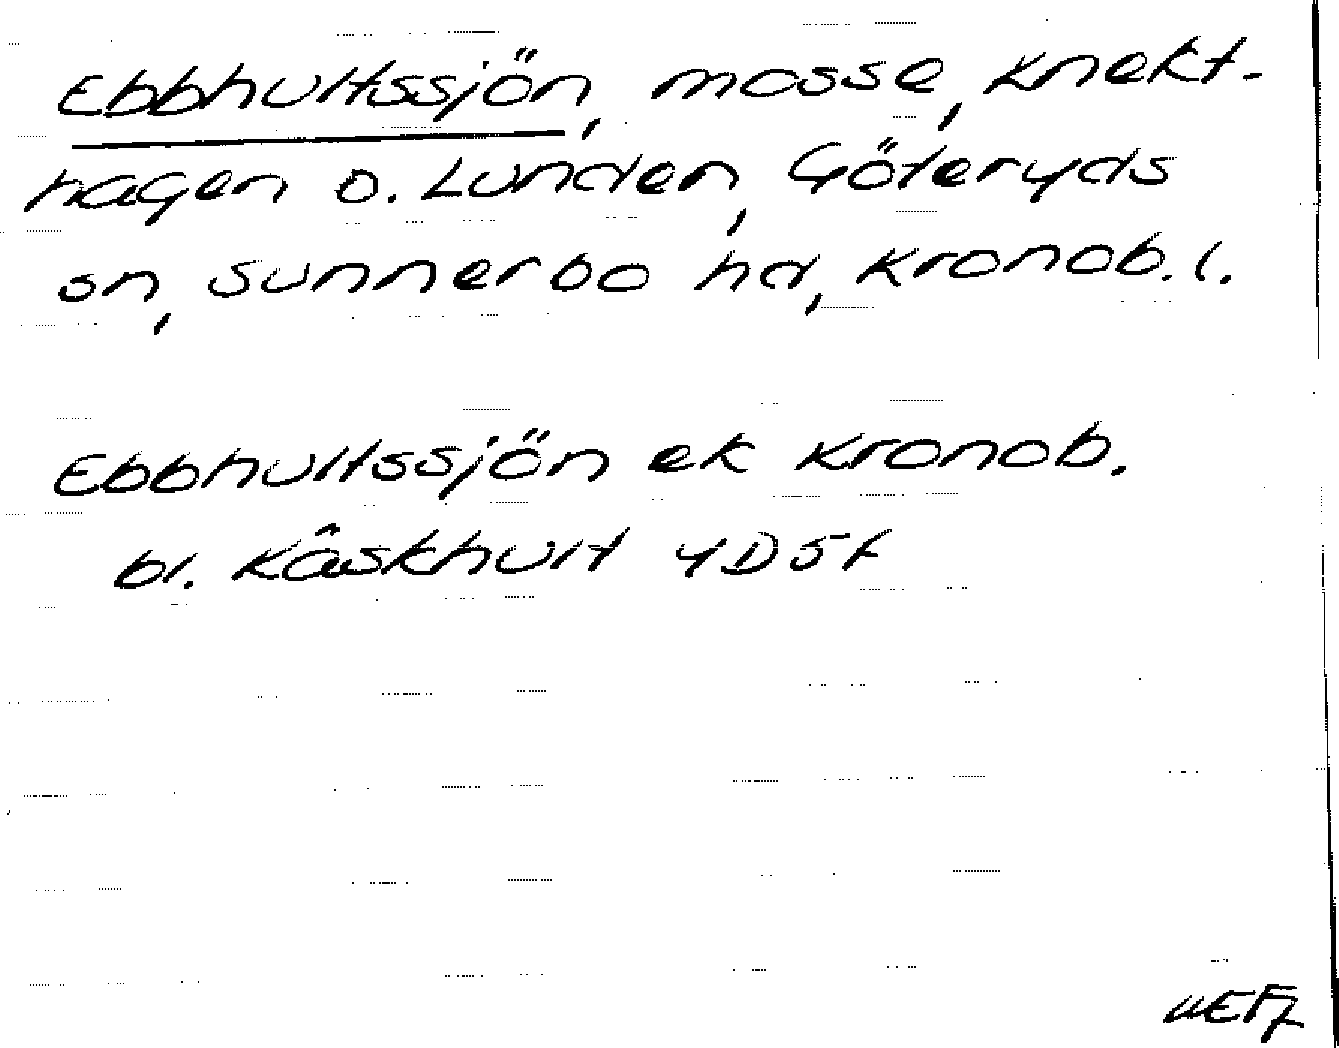 Ebbhultssjön, mosse, Knekt-
hagen o. Lunden, Göteryds
sn, Sunnerbo hd, Kronob. l.
Ebbhultssjön ek Kronob.
bl. Kåskhult 4D5f